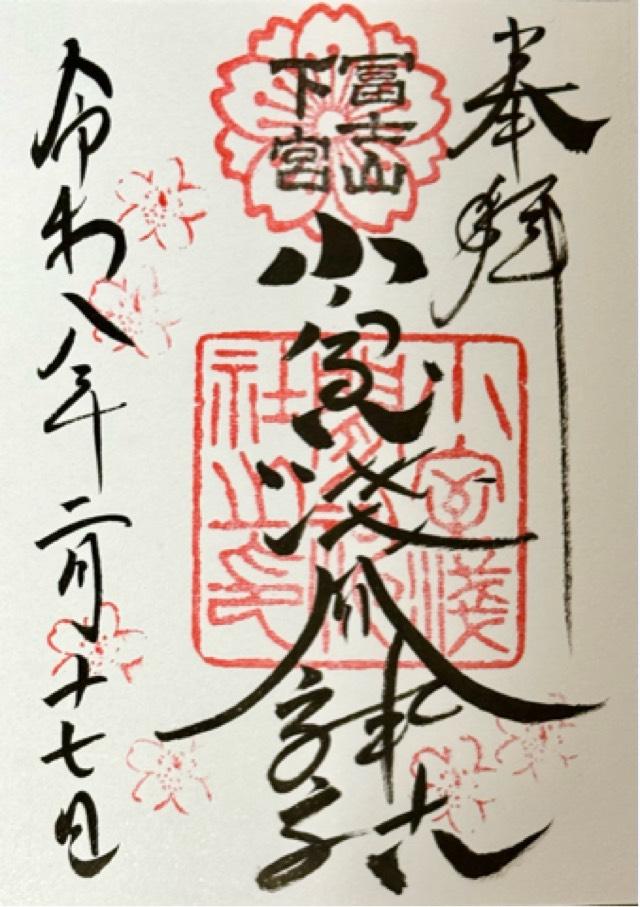 奉拝
冨士山
下宮
小室浅間神社
小室淺
間神
社之印
令和八年二月十七日